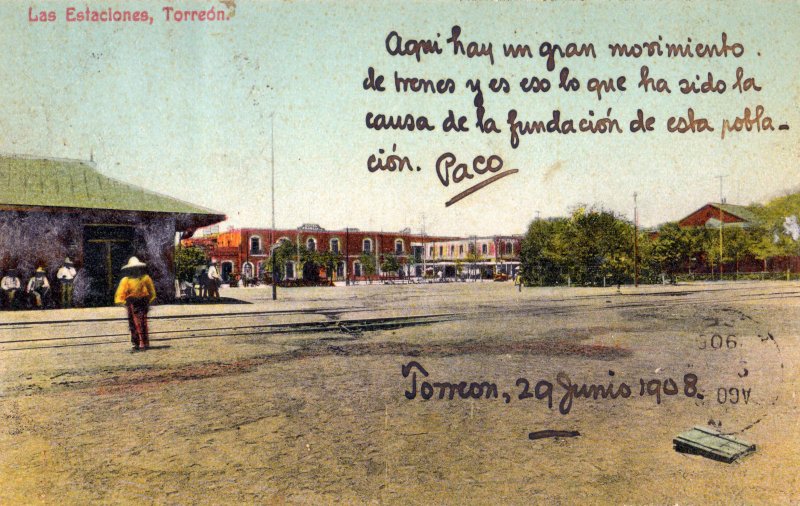 Las Estaciones, Torreón.
Aqui hay un gran movimiento.
de trenes y es eso lo que ha sido la
causa de la fundación de esta pobla-
ción. Paco
Torreon, 29 Junio 1908.